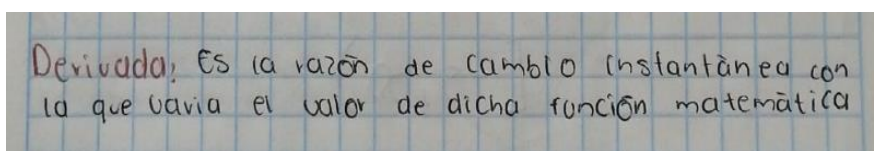 Derivada: Es la razón de cambio instantánea con
la que varia el valor de dicha función matemática